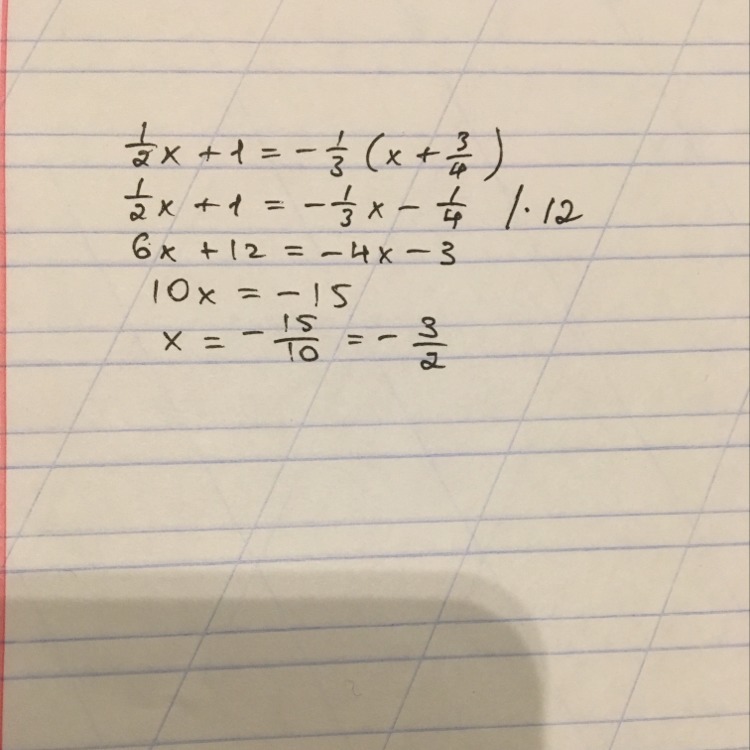 1/2 x + 1 = - 1/3 (x + 3/4)
1/2 x + 1 = - 1/3 x - 1/4 /· 12
6x + 12 = - 4x - 3
10x = - 15
x = - 15/10 = - 3/2